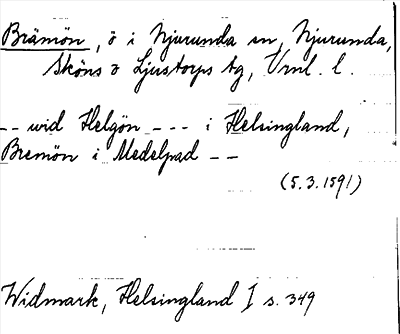 Brämön, ö i Njurunda sn, Njurunda,
Sköns o Ljustorps tg, Vrnl. l.
-- wid Helgön --- i Helsingland,
Bremön i Medelpad --
(5.3.1591)
Widmark, Helsingland I s. 349